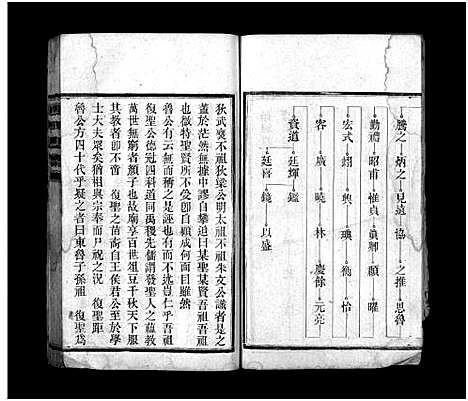 騰之 炳之 見遠 協 之推 思魯
勤禮 昭甫 惟貞 眞卿 頵 曜
宏式 翊 輿 璵 衡 怡
容 廣 曉 林 慶餘 元亮
資道 廷輝 鑑
廷喜 鏡 以盛
狄武襄不祖狄梁公明太祖不祖朱文公識者是之
蓋於茫然無據中謬自攀追曰某聖某賢吾祖吾祖
也微特聖賢所不受卽自顧成何面目雖然
魯公有云無而稱之是誣也有而不述豈仁乎吾祖
復聖公德冠四科道同禹稷先儒謂發聖人之蘊教
萬世無窮者顏子也故廟享百世俎豆千秋天下服
其教者卽不啻 復聖之苗裔自王侯君公至於學
士大夫眾矣猶祖與宗奉而尸祝之況 復聖距
魯公方四十代乎疑之者曰東魯子孫祖 復聖爲